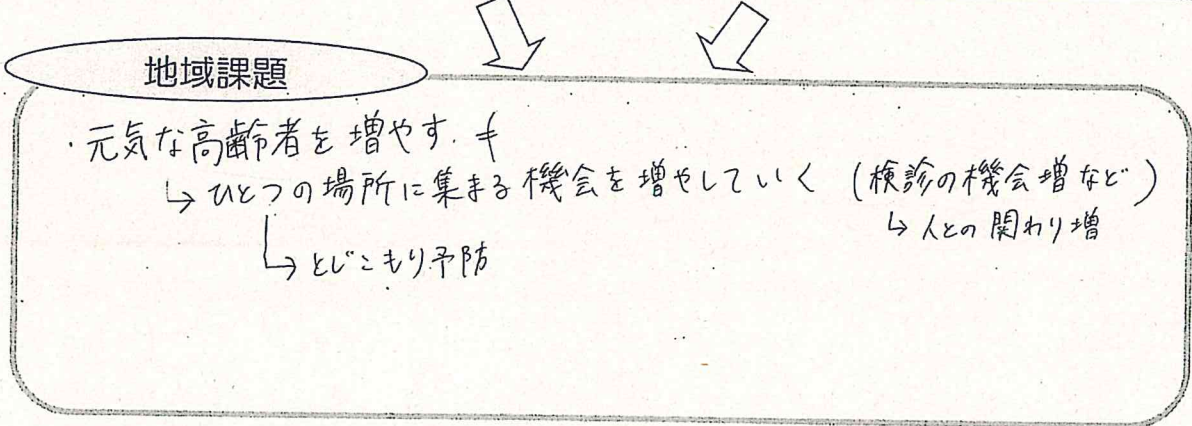 地域課題
・元気な高齢者を増やす.
↳ ひとつの場所に集まる機会を増やしていく (検診の機会増など)
↳ 人との関わり増
↳ とじこもり予防